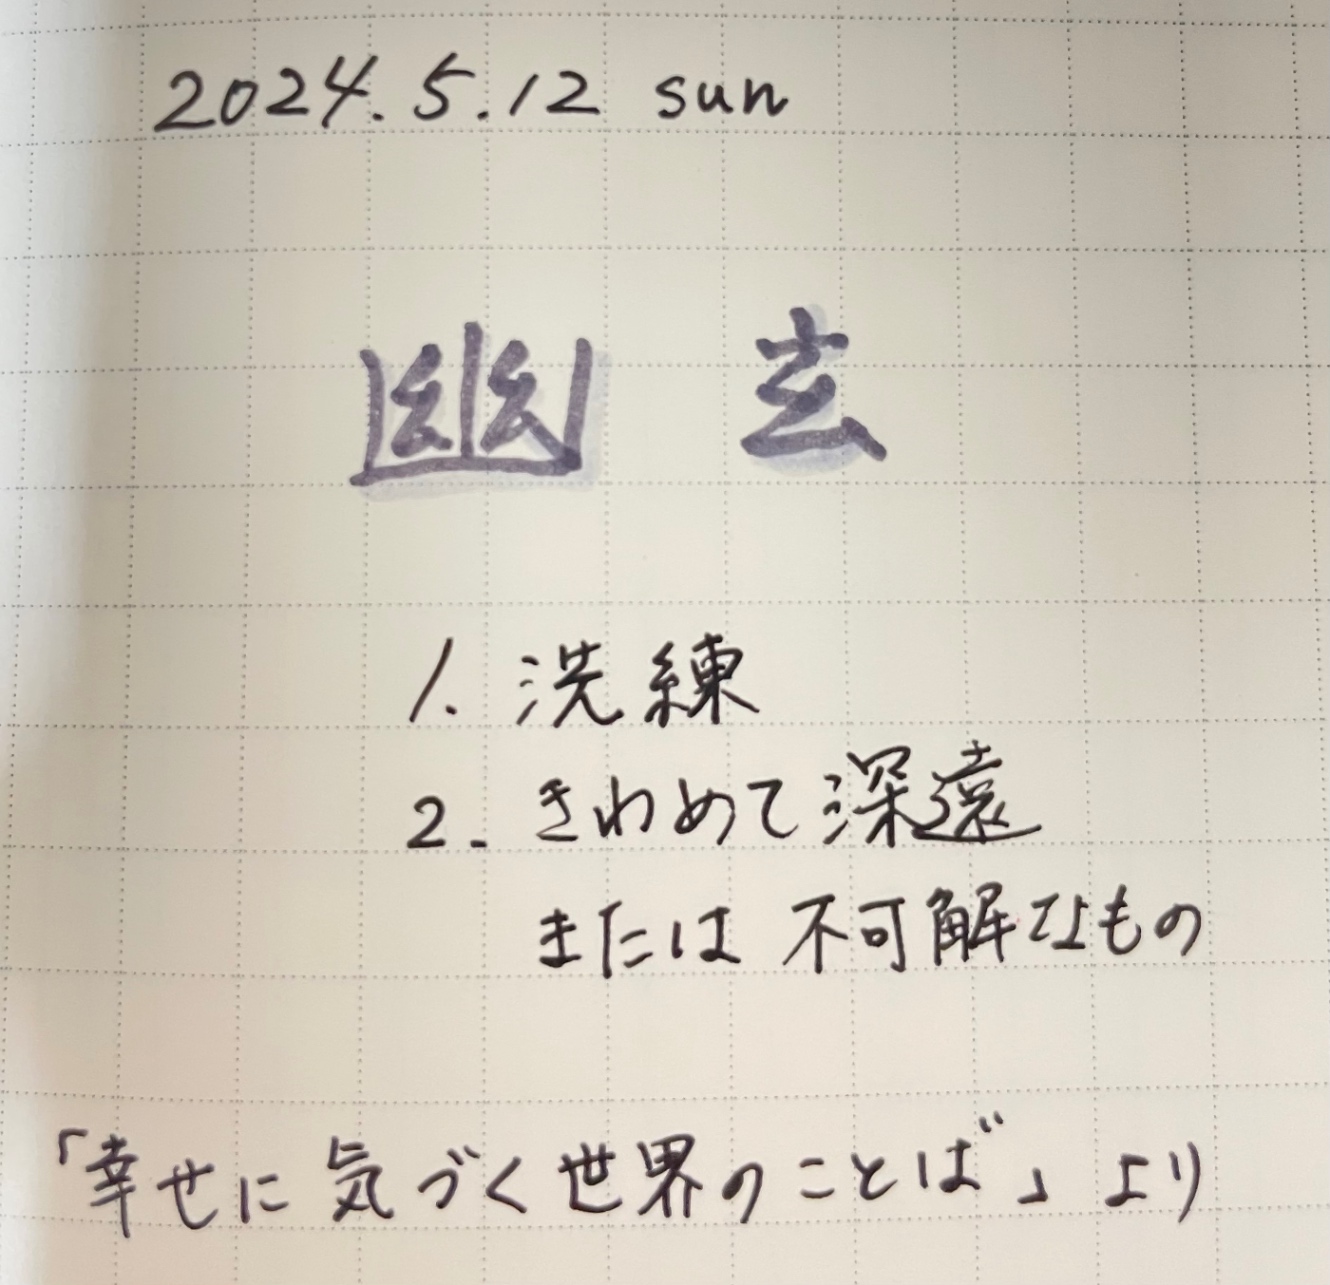 2024.5.12 sun
幽玄
1. 洗練
2. きわめて深遠
または不可解なもの
「幸せに気づく世界のことば」より